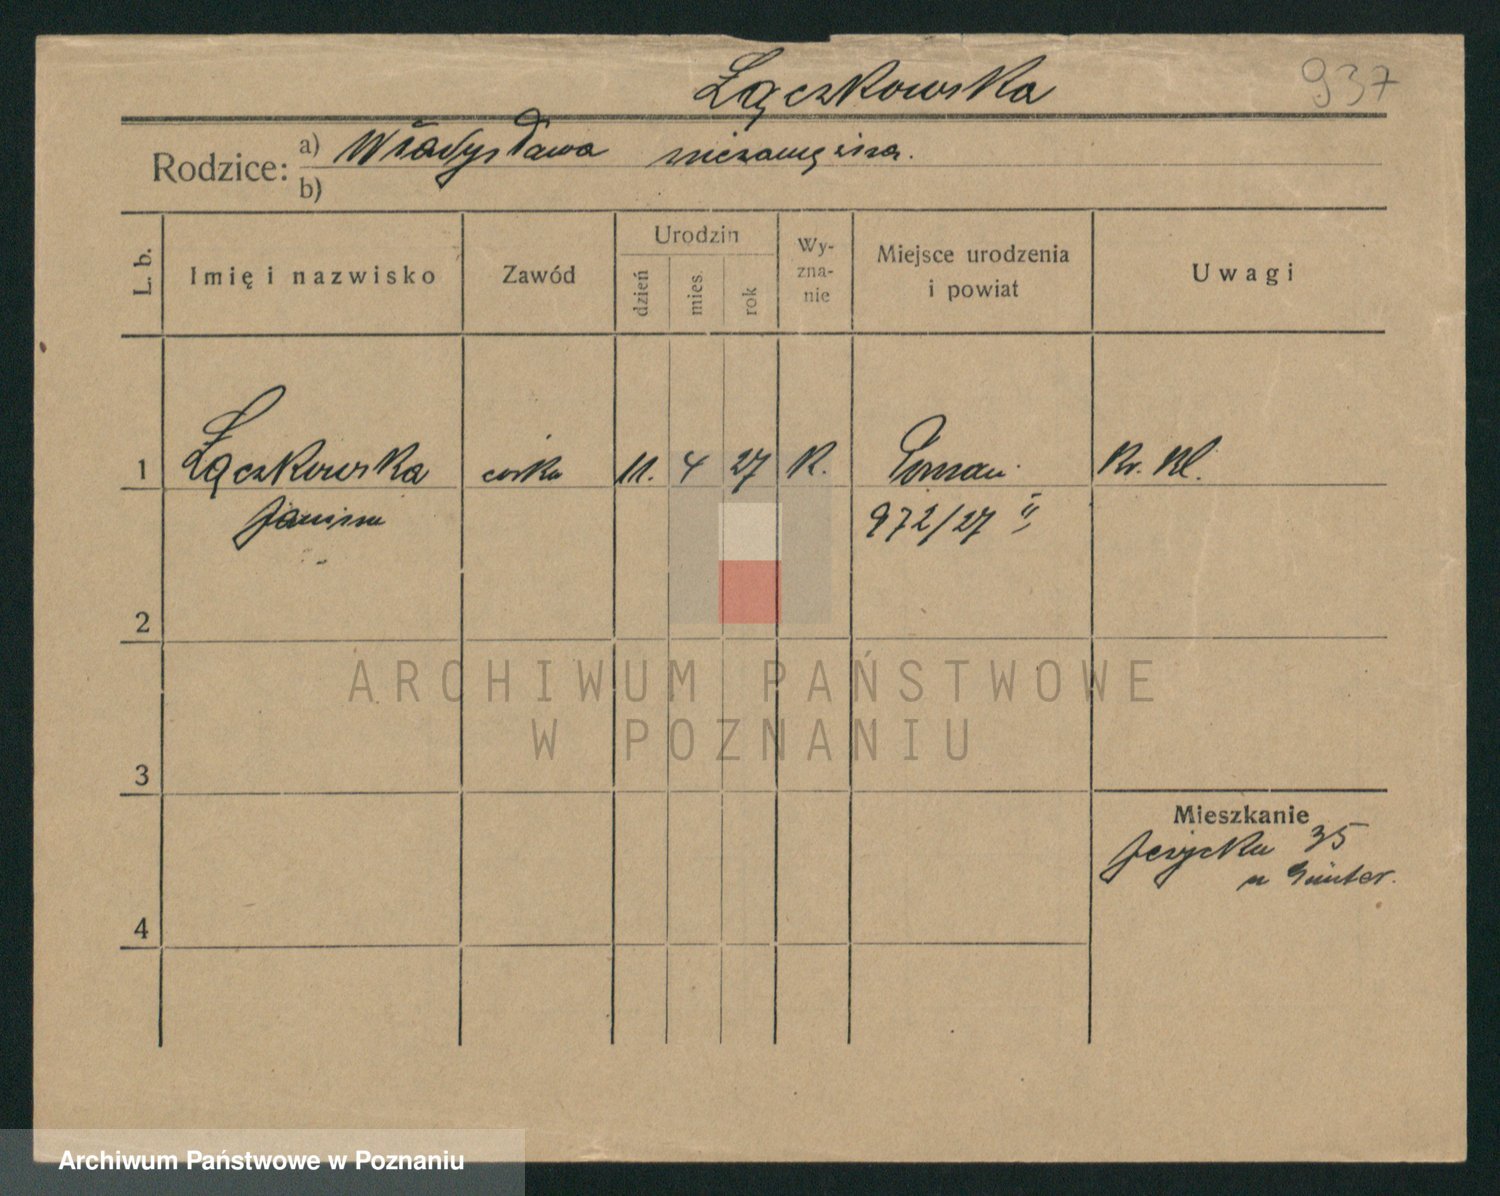 Łączkowska 937
Rodzice: a) Władysława niezamężna.
b)
L. b. Imię i nazwisko Zawód Urodzin dzień mies. rok Wy-zna-nie Miejsce urodzenia i powiat Uwagi
1 Łączkowska córka 11. 4 27 K. Poznań
Janina 972/27 II
2
3
4
Mieszkanie
35
ARCHIWUM PAŃSTWOWE
W POZNANIU
Archiwum Państwowe w Poznaniu